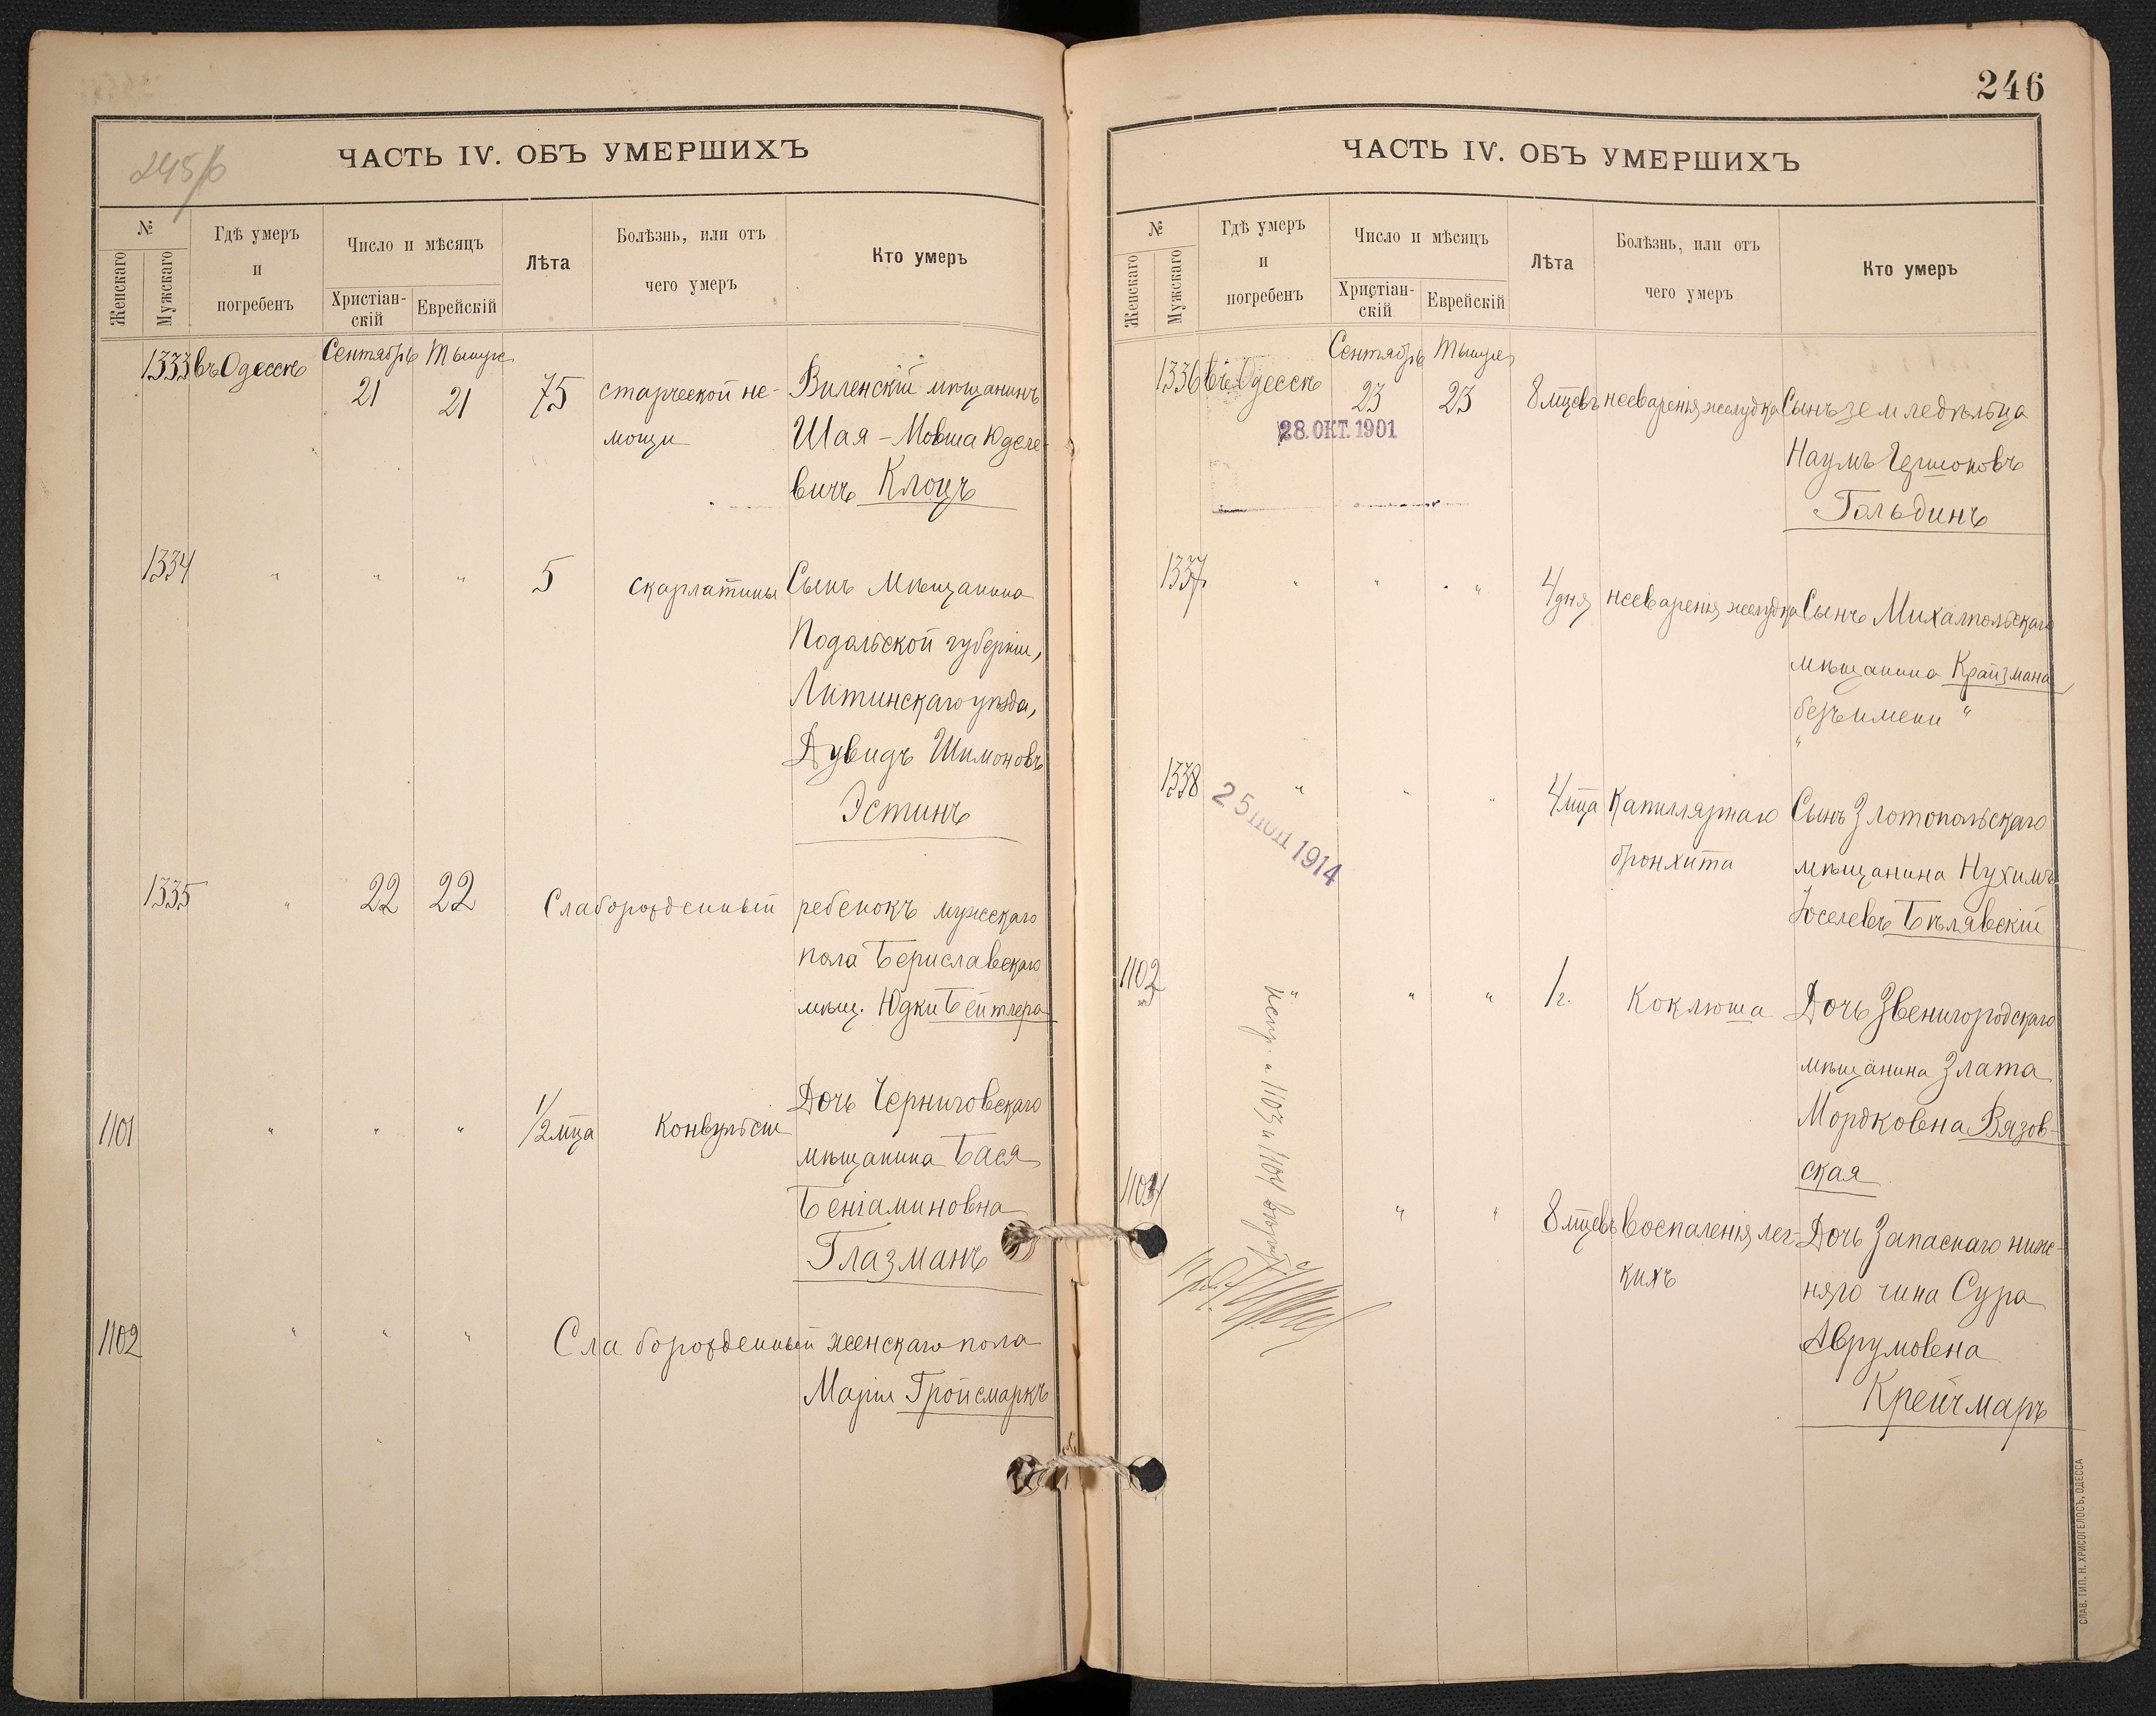 245/б
ЧАСТЬ IV. ОБЪ УМЕРШИХЪ
№
Женскаго
Мужскаго
Гдѣ умеръ
и
погребенъ
Число и мѣсяцъ
Христіан-
скій
Еврейскій
Лѣта
Болѣзнь, или отъ
чего умеръ
Кто умеръ
1333 въ Одессѣ Сентябрь Тышре
21 21 75 старческой не- Виленскій мѣщанинъ
мощи Шая-Мовша Юделе-
вичъ Клоцъ
1334 " " " 5 скарлатины Сынъ мѣщанина
Подольской губерніи,
Литинскаго уѣзда,
Дувидъ Шимоновъ
Эстинъ
1335 " 22 22 Слаборожденный ребенокъ мужскаго
пола Бериславскаго
мѣщ. Юдки Бейтлера
Дочь Черниговскаго
1101 " " " 1/2 мца Конвульсіи
мѣщанина Бася
Беніаминовна
Глазманъ
1102 " " " Слаборожденный женскаго пола
Марія Гройсмаркъ
246
ЧАСТЬ IV. ОБЪ УМЕРШИХЪ
№
Женскаго
Мужскаго
Гдѣ умеръ
и
погребенъ
Число и мѣсяцъ
Христіан-
скій
Еврейскій
Лѣта
Болѣзнь, или отъ
чего умеръ
Кто умеръ
1336 въ Одессѣ Сентябрь Тышре
23 23 8 мцевъ несваренія желудка Сынъ земледѣльца
28. ОКТ. 1901
Наумъ Гершоновъ
Гольдинъ
1337 " " " 4 дня несваренія желудка Сынъ Михалпольскаго
мѣщанина Крайзмана
безъ имени "
"
1338 " " " 4 мца Капиллярнаго Сынъ Златопольскаго
25 1914
бронхита мѣщанина Нухимъ
Іоселевъ Бѣлявскій
1102 " " 1 г. Коклюша Дочь Звенигородскаго
мѣщанина Злата
Мордковна Вязов-
ская
1104 " " 8 мцевъ воспаленія лег- Дочь Запаснаго ниж-
кихъ няго чина Сура
Аврумовна
Крейчмаръ
Испр. " 1103 и 1104
СЛАВ. ТИП. Н. ХРИСОГЕЛОСЪ, ОДЕССА